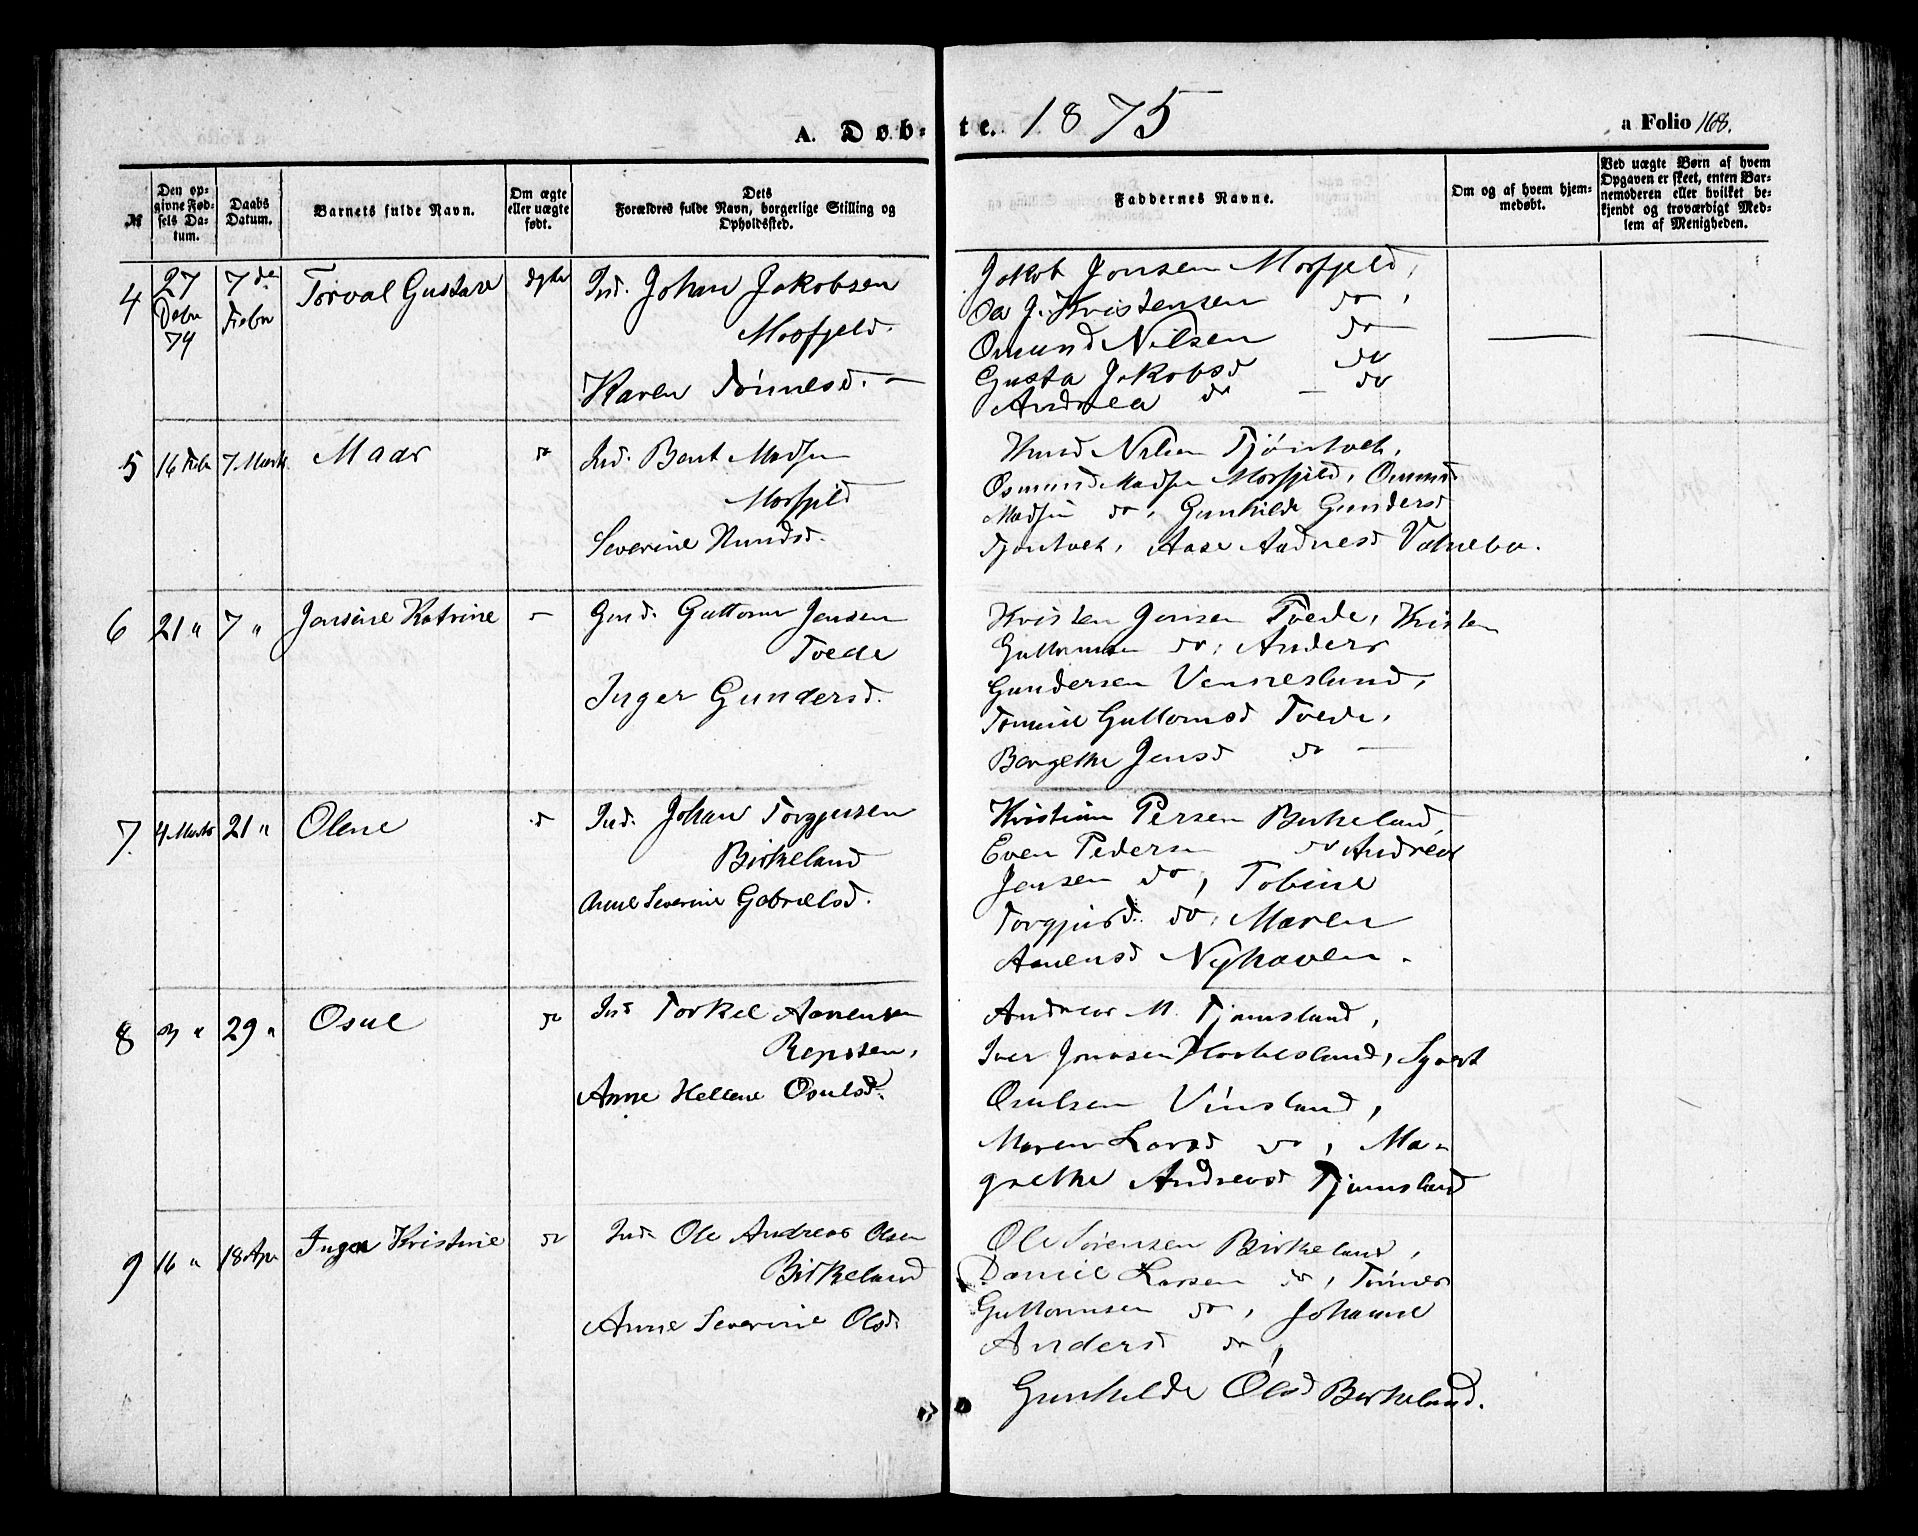 A. Døb- te. 1875
a Folio 168.
№
Den opgivne Fødsels Datum.
Daabs Datum.
Barnets fulde Navn.
Om ægte eller uægte født.
Dets Forældres fulde Navn, borgerlige Stilling og Opholdssted.
Faddernes Navne.
Om og af hvem hjemmedøbt.
Ved uægte Børn af hvem Opgaven er skeet, enten Barnemoderen eller hvilket bekjendt og troværdigt Medlem af Menigheden.
4
27 Debr 74
7de Febr
Torval Gustav
Ind. Johan Jakobsen
Mosfjeld.
Karen Tønnesd. —
Jakob Jonsen Mosfjeld,
J. Kristensen do,
Omund Nilsen do
Gusta Jakobsd do
Andrea do — do
5
16 Febr
7 Marts
Mads
do
Ind. Bent Madsen
Mosfjeld
Severine Knudsd.
Knud Nilsen
Osmund Madsen Mosfjeld, Omund
Madsen do, Gunhilde Gundersd
Aase Aadnesd
6
21 "
7 "
Jensine Katrine
Grd. Guttorm Jensen
Tvede
Inger Gundersd.
Kristen Jensen Tvede, Kristen
Guttormsen do, Anders
Gundersen Venneslund,
Tomine Guttormsd Tvede,
Bergethe Jensd do —
7.
4 Marts
21 "
Olene
do
Ind. Johan Torgjusen
Birkeland
Anne Severine Gabrielsd.
Kristian Persen Birkeland,
Even Pedersen do Andreas
Jensen do, Tobine
Torgjusd. do, Maren
Aanensd Nyhaven.
8
3 "
29 "
Osul
do
Ind Torkel Aanensen
Repsten,
Anne Hellene Osulsd.
Andreas M. Tjomsland,
Iver Jonasen
Osulsen Vinsland,
Maren Larsd do, Ma-
grethe Andreasd Tjomsland
9
16 "
18 Apr
Inger Kristine
do
Ind. Ole Andreas Olsen
Birkeland
Anne Severine Olsd.
Ole Sørensen Birkeland,
Daniel Larsen do, Tønnes
Guttormsen do, Johanne
Andersd do,
Gunhilde Olsd Birkeland.